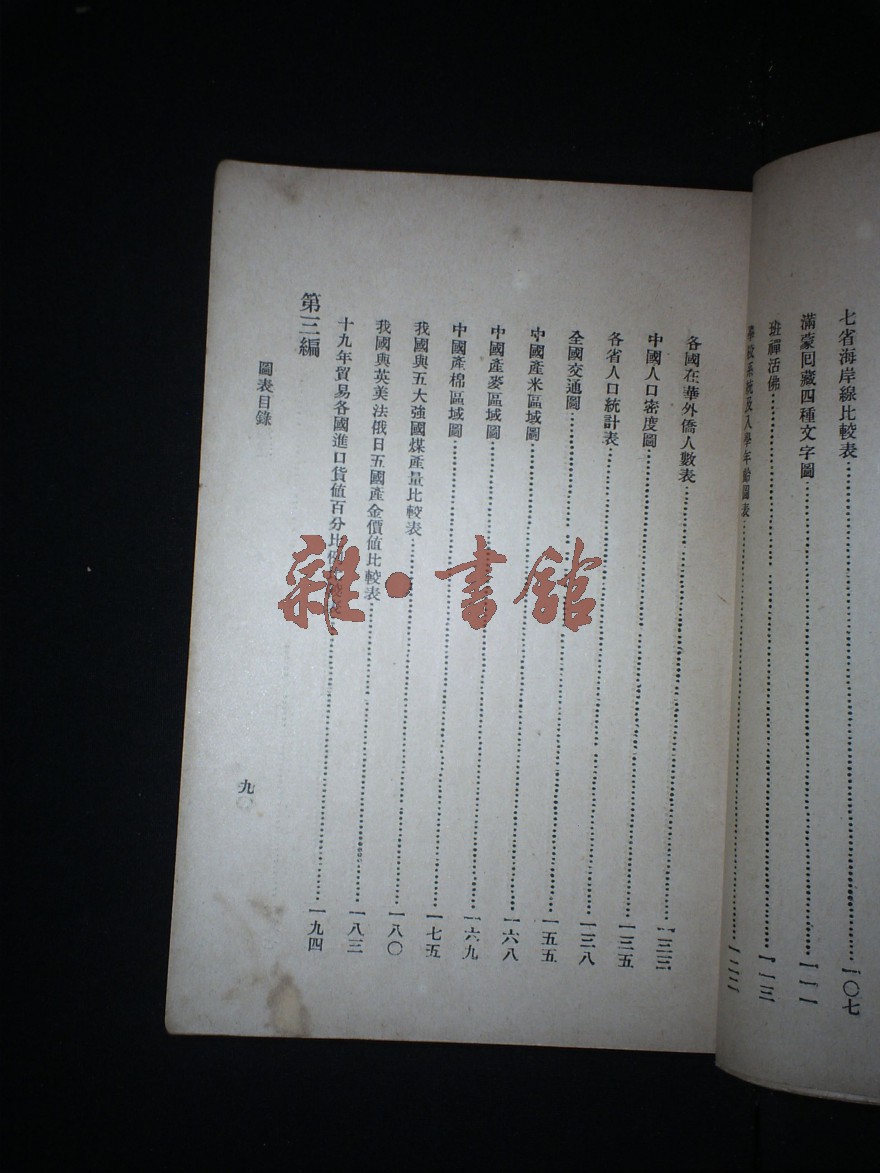 七省海岸線比較表……一〇七
滿蒙囘藏四種文字圖……一一一
班禪活佛……一一三
學校系統及入學年齡圖表……一二二
各國在華外僑人數表……一三三
中國人口密度圖……一三五
各省人口統計表……一三八
全國交通圖……一五五
中國產米區域圖……一六八
中國產麥區域圖……一六九
中國產棉區域圖……一七五
我國與五大強國煤產量比較表……一八〇
我國與英美法俄日五國產金價値比較表……一八三
十九年貿易各國進口貨値百分比……一九四
第三編
圖表目錄
九
雜·書館